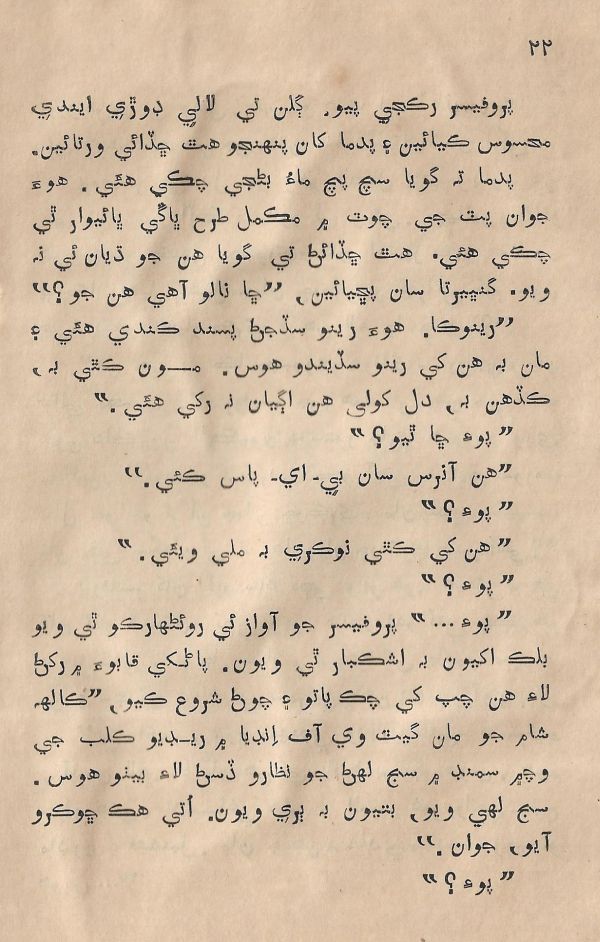 ٢٢
پروفيسر رڪجي پيو. ڳلن تي لالي ڊوڙي ايندي
محسوس ڪيائين ۽ پدما کان پنهنجو هٿ ڇڏائي ورتائين.
پدما ته گويا سچ پچ ماءُ بڻجي چڪي هئي. هوءَ
جوان پٽ جي چوٽ ۾ مڪمل طرح ڀاڱي ڀائيوار ٿي
چڪي هئي. هٿ ڇڏائڻ تي گويا هن جو ڌيان ئي نه
ويو. گنڀيرتا سان پڇيائين, ”ڇا نالو آهي هن جو؟“
”رينوڪا. هوءَ رينو سڏجڻ پسند ڪندي هئي ۽
مان به هن کي رينو سڏيندو هوس. مـــون ڪٿي به,
ڪڏهن به, دل کولي هن اڳيان نه رکي هئي.“
”پوءِ ڇا ٿيو؟“
”هن آنرس سان بي- اي- پاس ڪئي.“
”پوءِ؟“
”هن کي ڪٿي نوڪري به ملي ويئي.“
”پوءِ؟“
”پوءِ...“ پروفيسر جو آواز ئي روئڻهارڪو ٿي ويو
بلڪ اکيون به اشڪبار ٿي ويون. پاڻکي قابوءَ ۾ رکڻ
لاءِ هن چپ کي چڪ پاتو ۽ چوڻ شروع ڪيو, ”ڪالهه
شام جو مان گيٽ وي آف اِنڊيا ۾ ريـڊيو ڪلب جي
وچ۾ سمنڊ ۾ سج لهڻ جو نظارو ڏسڻ لاءِ بيٺو هوس.
سج لهي ويو, بتيون به ٻري ويون. اُتي هڪ ڇوڪرو
آيو, جوان.“
”پوءِ؟“